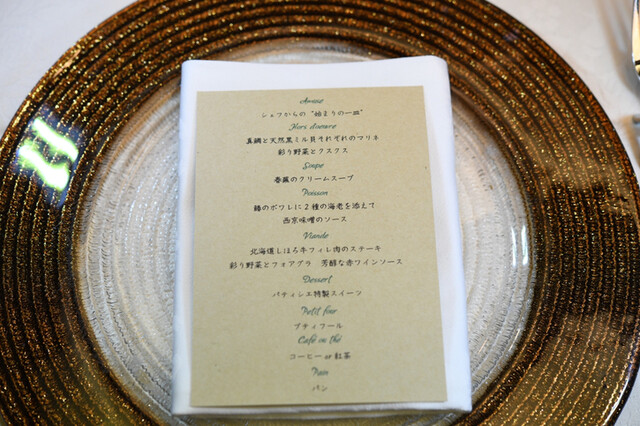 Amuse
シェフからの"始まりの一皿"
Hors d'oeuvre
真鯛と天然黒ミル貝それぞれのマリネ
彩り野菜とクスクス
Soupe
春蕪のクリームスープ
Poisson
鰆のポワレに2種の海老を添えて
西京味噌のソース
Viande
北海道しほろ牛フィレ肉のステーキ
彩り野菜とフォアグラ 芳醇な赤ワインソース
Dessert
パティシエ特製スイーツ
Petit four
プティフール
Café ou thé
コーヒー or 紅茶
Pain
パン